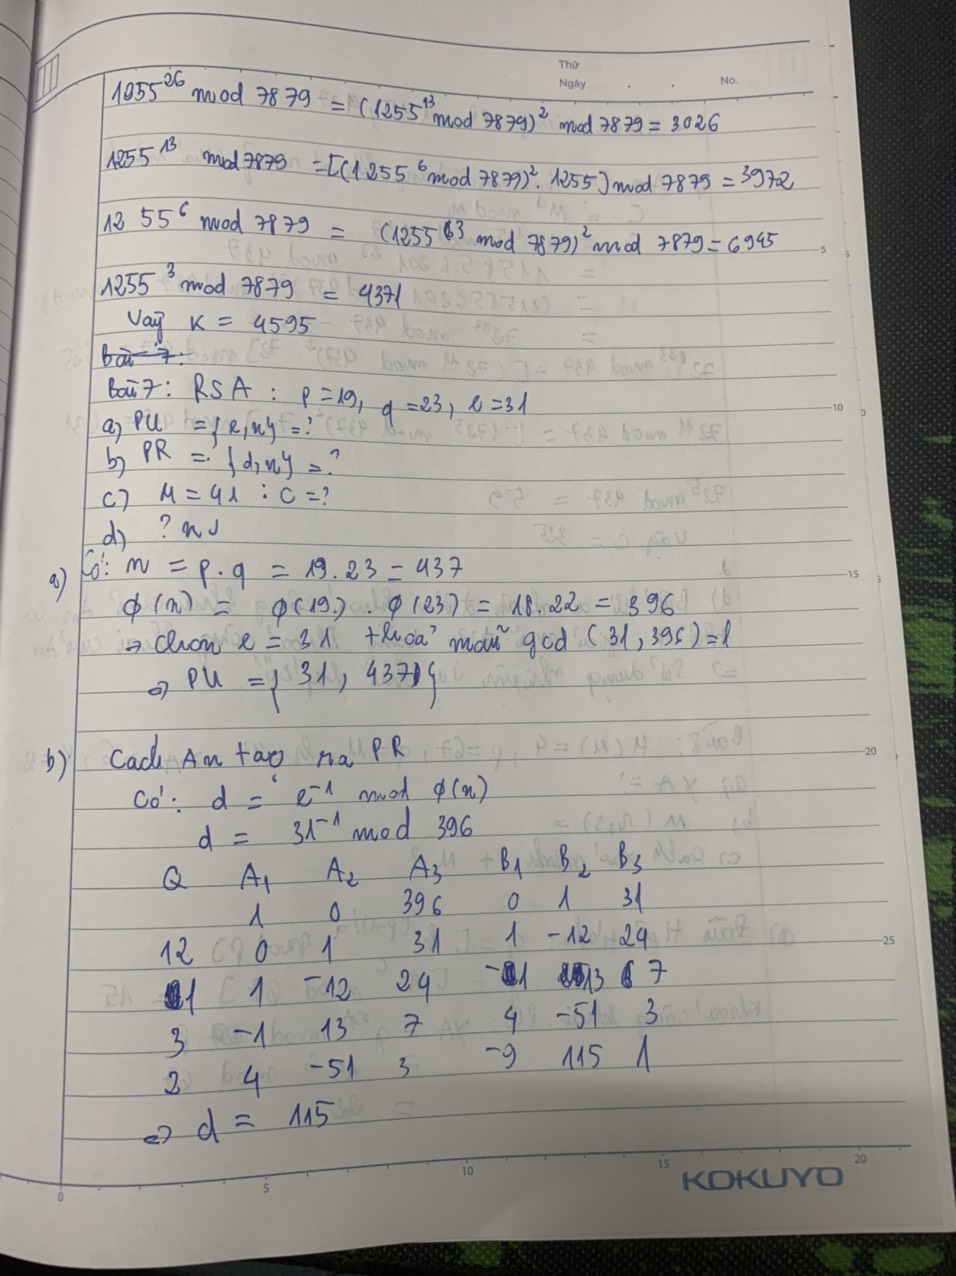 Thứ
Ngày . . No.
1255^26 mod 7879 = (1255^13 mod 7879)^2 mod 7879 = 3026
1255^13 mod 7879 = [(1255^6 mod 7879)^2 . 1255] mod 7879 = 3972
1255^6 mod 7879 = (1255^3 mod 7879)^2 mod 7879 = 6945
1255^3 mod 7879 = 4371
Vậy K = 4595
Bài 7:
Bài 7: RSA : p = 19, q = 23, e = 31
a) PU = {e, n} = ?
b) PR = {d, n} = ?
c) M = 41 : C = ?
d) ?
a) Có: n = p.q = 19.23 = 437
ϕ(n) = ϕ(19) . ϕ(23) = 18.22 = 396
⇒ chọn e = 31 thoả mãn gcd(31, 396) = 1
⇒ PU = {31, 437}
b) Cách An tạo ra PR
Có: d = e^-1 mod ϕ(n)
d = 31^-1 mod 396
Q A1 A2 A3 B1 B2 B3
1 0 396 0 1 31
12 0 1 31 1 -12 24
1 1 -12 24 -1 13 7
3 -1 13 7 4 -51 3
2 4 -51 3 -9 115 1
⇒ d = 115
KOKUYO